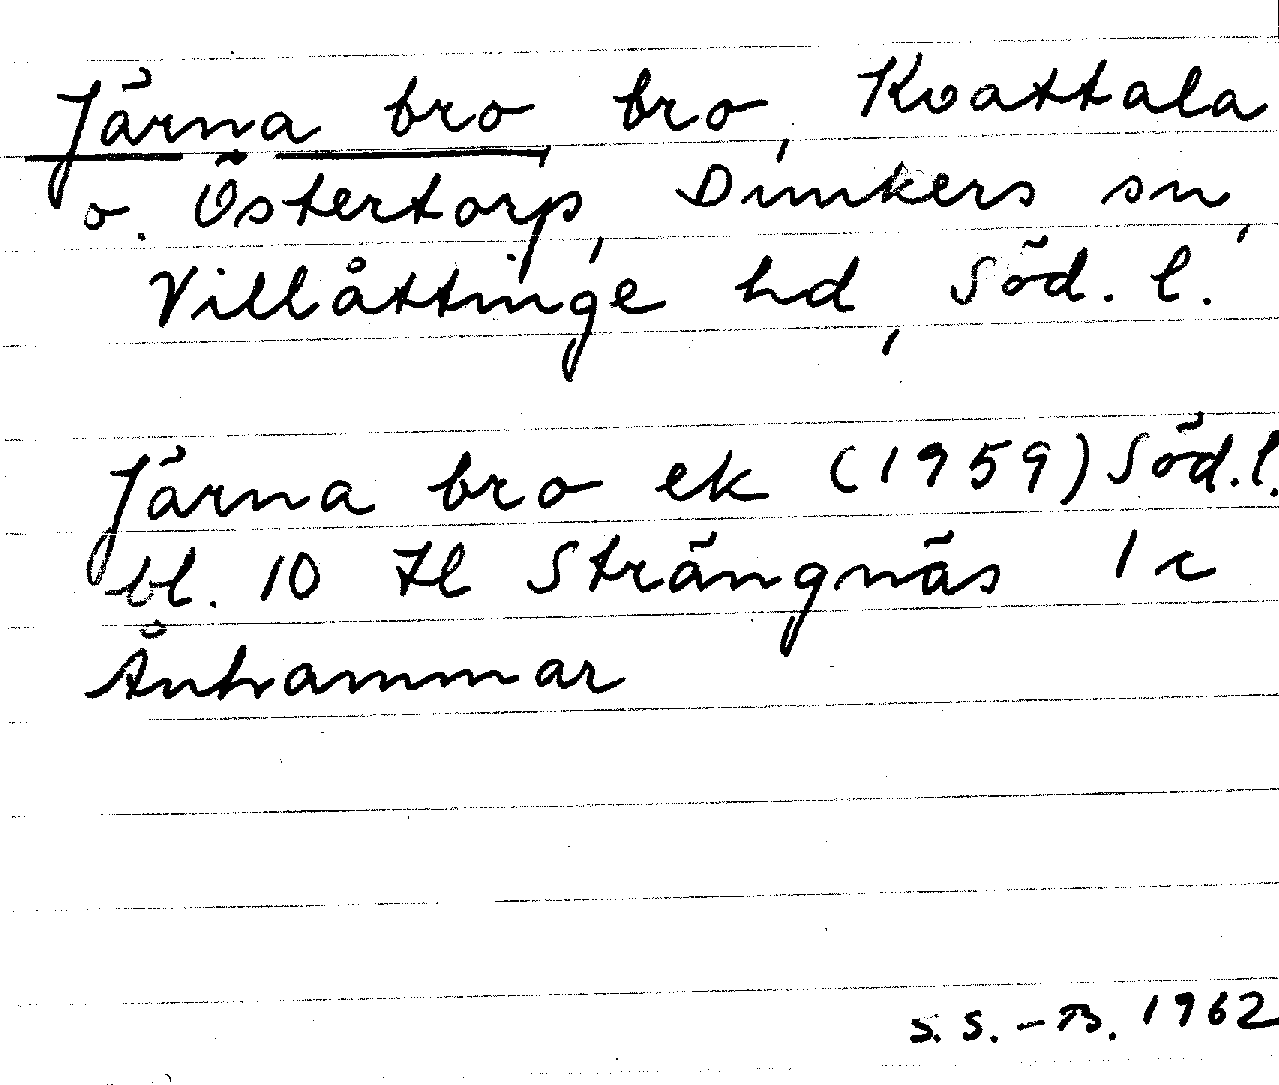 Järna bro bro, Kvattala
o. Östertorp, Dunkers sn,
Villåttinge hd, Söd. l.
Järna bro ek (1959) Söd. l.
bl. 10 tl Strängnäs 1 c
Ånhammar
S. S. - B. 1962